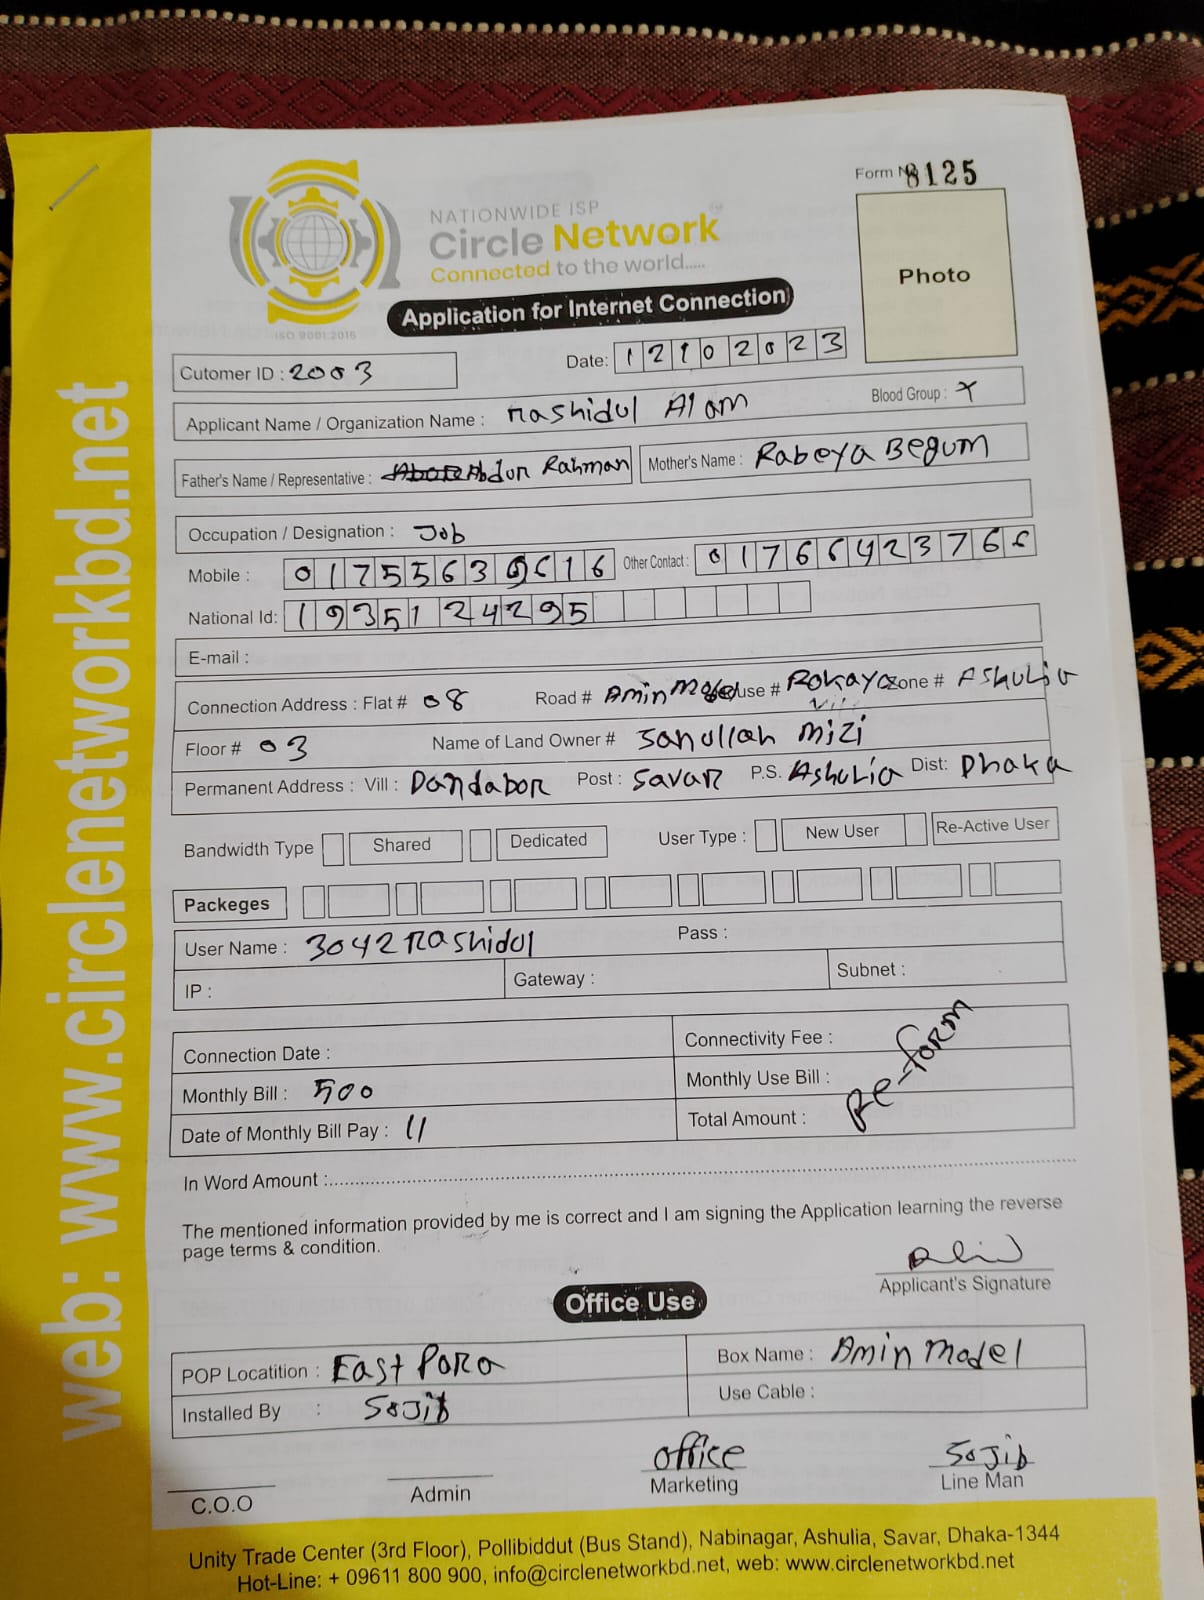 web: www.circlenetworkbd.net
Form N 8125
NATIONWIDE ISP
Circle Network
Connected to the world.....
ISO 9001:2015
Photo
Application for Internet Connection
Cutomer ID : 2003 Date: 12102023
Applicant Name / Organization Name : Rashidul Alam Blood Group :
Father's Name / Representative : Abdur Rahman Mother's Name : Rabeya Begum
Occupation / Designation : Job
Mobile : 01755630616 Other Contact : 01766423766
National Id: 1935124295
E-mail :
Connection Address : Flat # 08 Road # Amin Model use # Rokaya zone # Ashulia
Floor # 03 Name of Land Owner # Sanullah Mizi
Permanent Address : Vill : Dandabor Post : Savar P.S. Ashulia Dist: Dhaka
Bandwidth Type Shared Dedicated User Type : New User Re-Active User
Packeges
User Name : 3042Rashidul Pass :
IP : Gateway : Subnet :
Connection Date : Connectivity Fee :
Monthly Bill : 500 Monthly Use Bill :
Date of Monthly Bill Pay : 11 Total Amount :
Re-form
In Word Amount :
The mentioned information provided by me is correct and I am signing the Application learning the reverse
page terms & condition.
Applicant's Signature
Office Use
POP Locatition : East Para Box Name : Amin Model
Installed By : Sojib Use Cable :
office Sojib
C.O.O Admin Marketing Line Man
Unity Trade Center (3rd Floor), Pollibiddut (Bus Stand), Nabinagar, Ashulia, Savar, Dhaka-1344
Hot-Line: + 09611 800 900, info@circlenetworkbd.net, web: www.circlenetworkbd.net